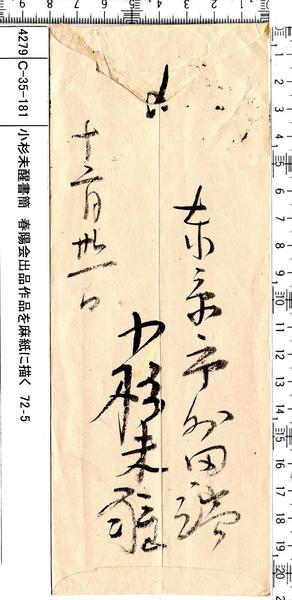 東京市外田端
小杉未醒
十二月卅一日
4279 C-35-181 小杉未醒書簡 春陽会出品作品を麻紙に描く 72-5